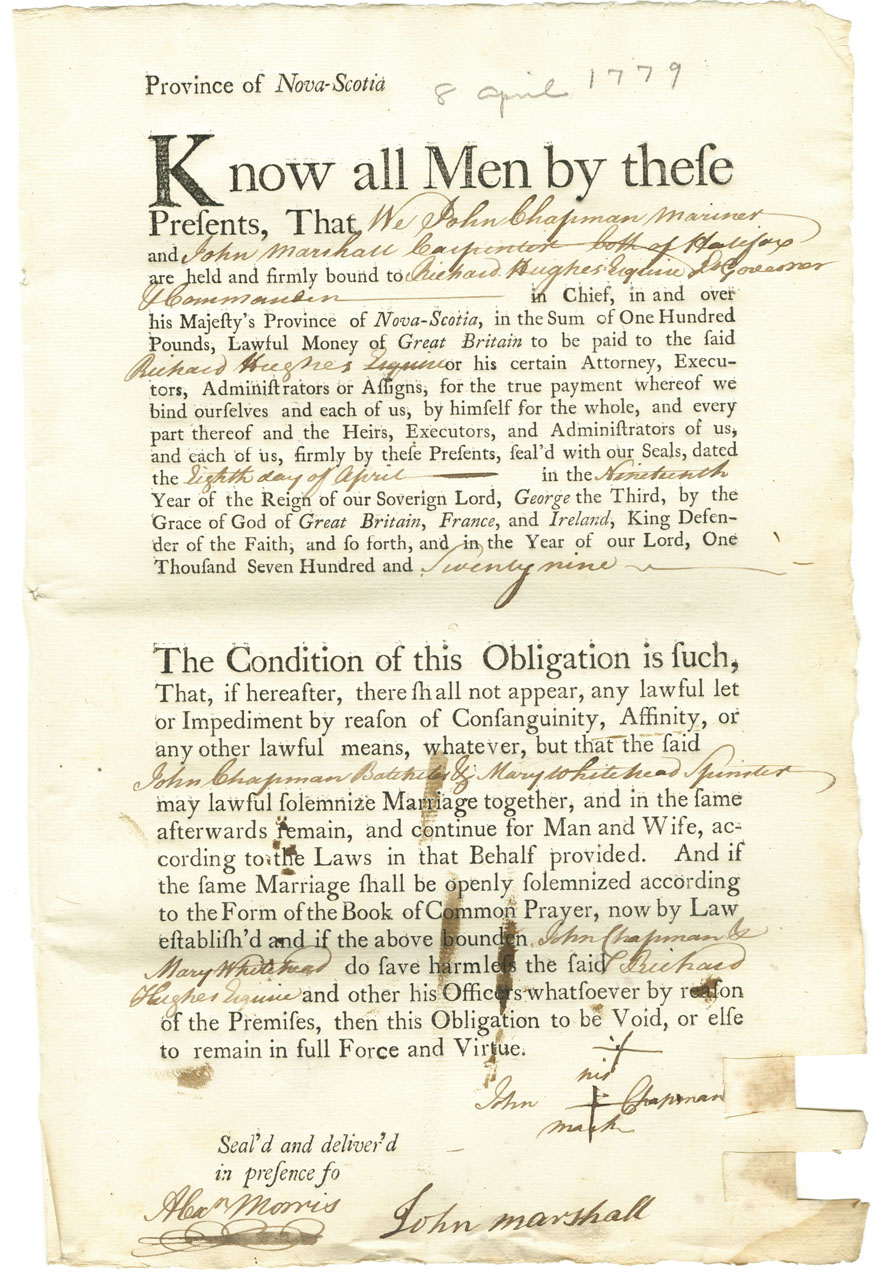 Province of Nova-Scotia
8 april 1779
Know all Men by theſe
Preſents, That We John Chapman Mariner
and John Marshall Carpenter both of Halifax
are held and firmly bound to Richard Hughes Esquire Lt Governor
& Commander in Chief, in and over
his Majeſty's Province of Nova-Scotia, in the Sum of One Hundred
Pounds, Lawful Money of Great Britain to be paid to the ſaid
Richard Hughes Esquire or his certain Attorney, Execu-
tors, Adminiſtrators or Aſſigns, for the true payment whereof we
bind ourſelves and each of us, by himſelf for the whole, and every
part thereof and the Heirs, Executors, and Adminiſtrators of us,
and each of us, firmly by theſe Preſents, ſeal'd with our Seals, dated
the Eighth day of April in the Nineteenth
Year of the Reign of our Soverign Lord, George the Third, by the
Grace of God of Great Britain, France, and Ireland, King Defen-
der of the Faith, and ſo forth, and in the Year of our Lord, One
Thouſand Seven Hundred and Seventy nine
The Condition of this Obligation is ſuch,
That, if hereafter, there ſhall not appear, any lawful let
or Impediment by reaſon of Conſanguinity, Affinity, or
any other lawful means, whatever, but that the ſaid
John Chapman Batchelor & Mary Whitehead Spinster
may lawful ſolemnize Marriage together, and in the ſame
afterwards remain, and continue for Man and Wife, ac-
cording to the Laws in that Behalf provided. And if
the ſame Marriage ſhall be openly ſolemnized according
to the Form of the Book of Common Prayer, now by Law
eſtabliſh'd and if the above bounden John Chapman &
Mary Whitehead do ſave harmleſs the ſaid Richard
Hughes Esquire and other his Officers whatſoever by reaſon
of the Premiſes, then this Obligation to be Void, or elſe
to remain in full Force and Virtue.
his
John Chapman
mark
Seal'd and deliver'd
in preſence fo
Alexr Morris
John Marshall